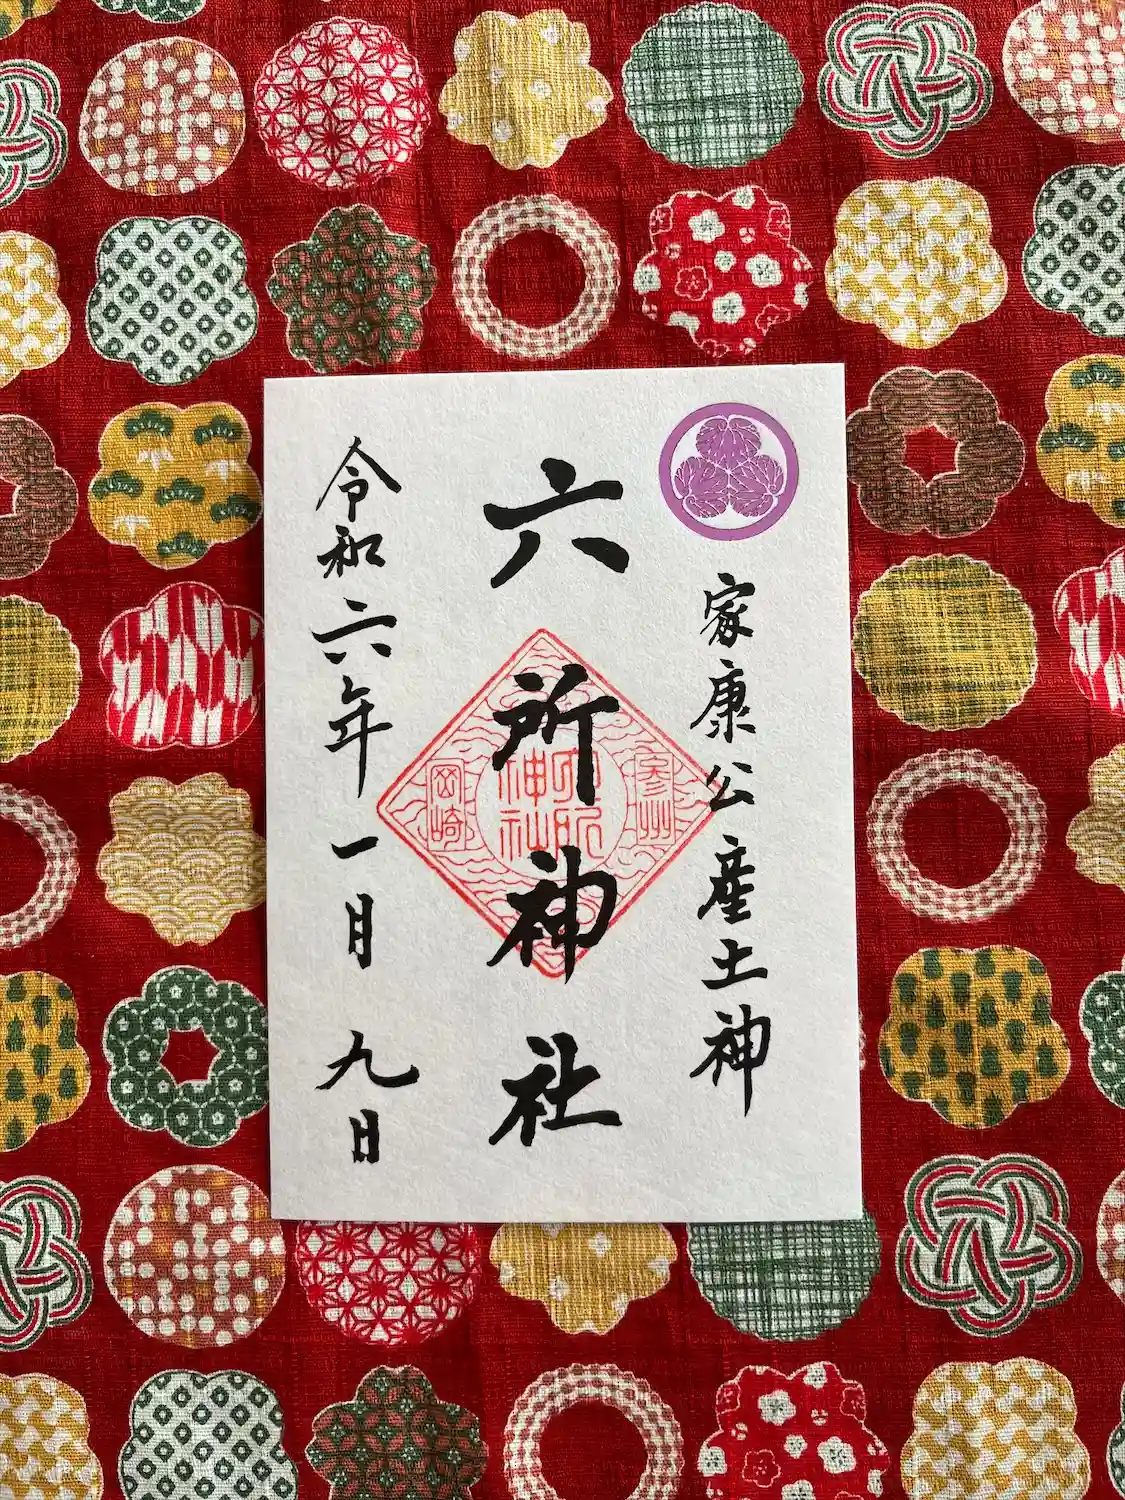 家康公産土神
六所神社
参州
六所
神社
岡崎
令和六年一月九日